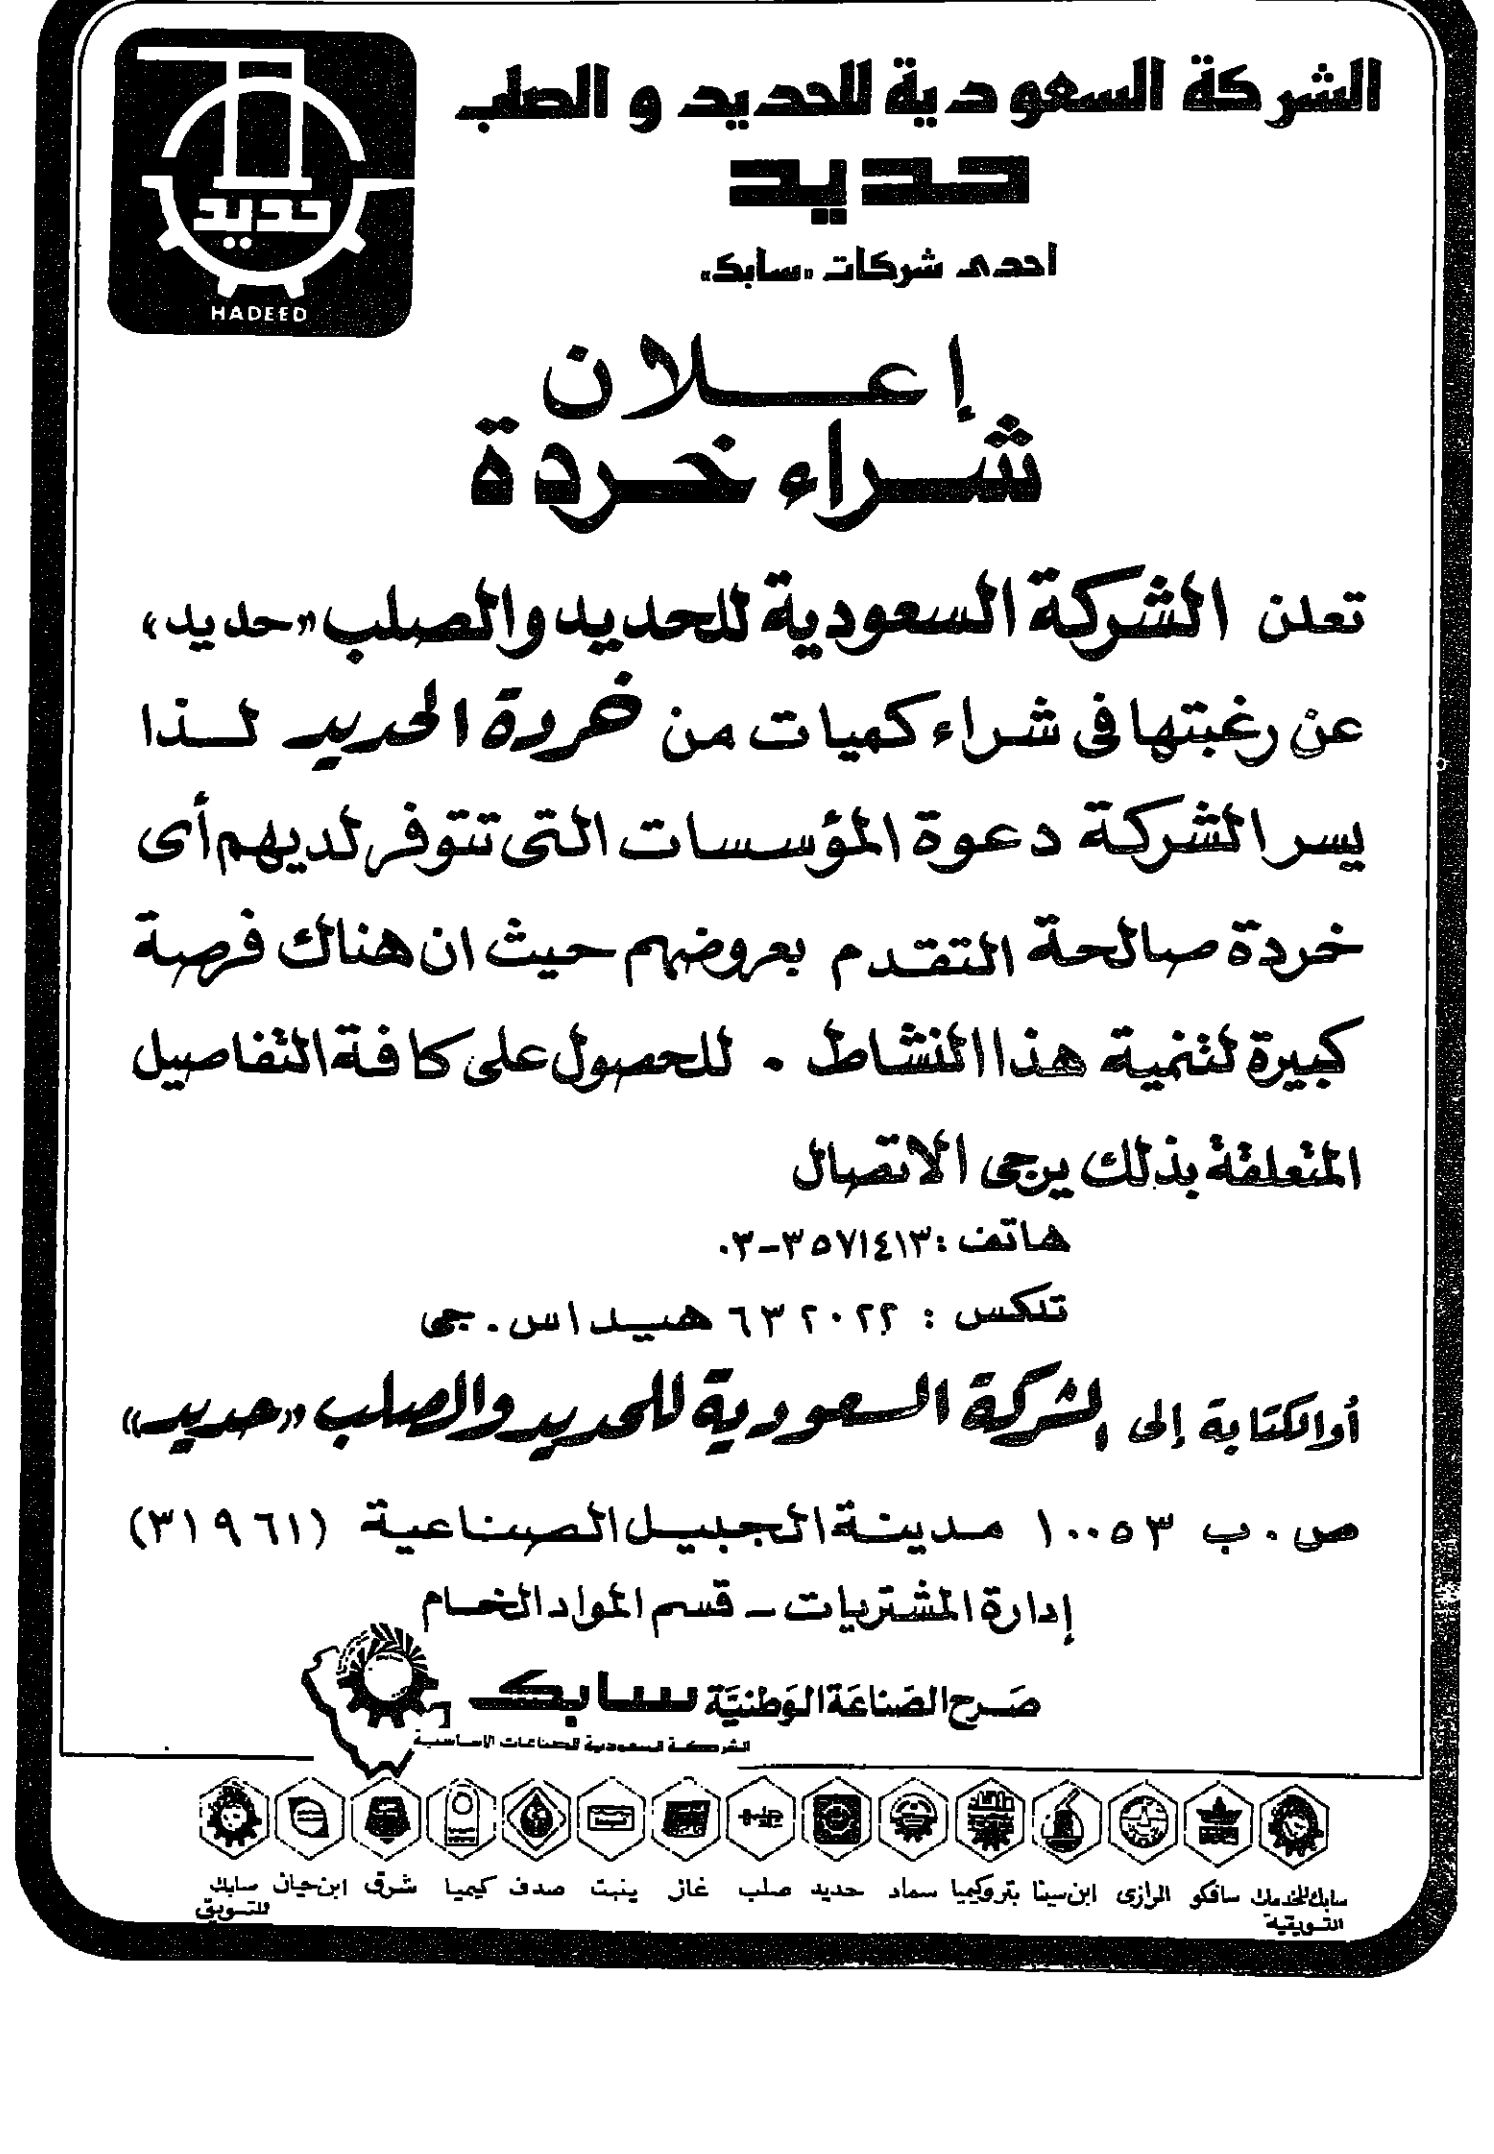 الشركة السعودية للحديد و الصلب
حديد
احدى شركات «سابك»
حديد
HADEED
إعلان
شراء خردة
تعلن الشركة السعودية للحديد والصلب «حديد»
عن رغبتها فى شراء كميات من خردة الحديد لذا
يسر الشركة دعوة المؤسسات التى تتوفر لديهم أى
خردة صالحة التقدم بعروضهم حيث ان هناك فرصة
كبيرة لتنمية هذا النشاط . للحصول على كافة التفاصيل
المتعلقة بذلك يرجى الاتصال
هاتف : ٣٥٧١٤١٣-٠٣
تلكس : ٦٣٢٠٢٢ هيداس . جى
أو الكتابة إلى الشركة السعودية للحديد والصلب «حديد»
ص . ب ١٠٠٥٣ مدينة الجبيل الصناعية (٣١٩٦١)
إدارة المشتريات - قسم المواد الخام
صَرح الصَناعَة الوَطنيَّة سابك
الشركة السعودية للصناعات الاساسية
سابك للخدمات التسويقية سافكو الرازى ابن سينا بتروكيميا سماد حديد صلب غاز ينبت صدف كيميا شرق ابن حيان سابك للتسويق